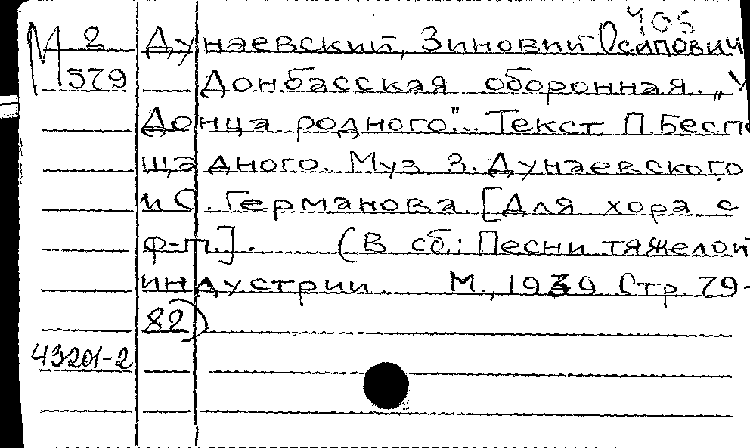 405
М 2 Дунаевский, Зиновий Осипович
579 Донбасская оборонная. „У
Донца родного". Текст П. Беспо
щадного. Муз. З. Дунаевского
и С. Германова. [Для хора с
ф-п.]. (В сб.: Песни тяжелой
индустрии. М., 1939. Стр. 79-
82)
43201-2